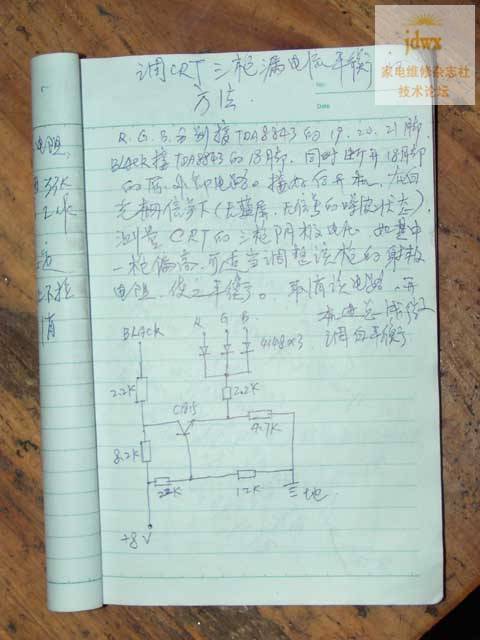 jdwx
家电维修杂志社
技术论坛
调CRT三枪漏电流平衡
方法.
No:
Date
R.G.B分别接TDA8843的19.20.21脚.
BLACK接TDA8843的18脚.同时断开18脚
的原外部电路。接好后开机,在白
光栅信号下(无蓝屏,无信号的噪波状态)
测量CRT的三枪阴极电压 如其中
一枪偏高,可适当调整该枪的射极
电阻,使之平衡。 取消该电路,再
调白平衡
电阻,
BLACK
R G B
4148×3
2.2K
2.2K
C815
4.7K
8.2K
22K
12K
地
+8V